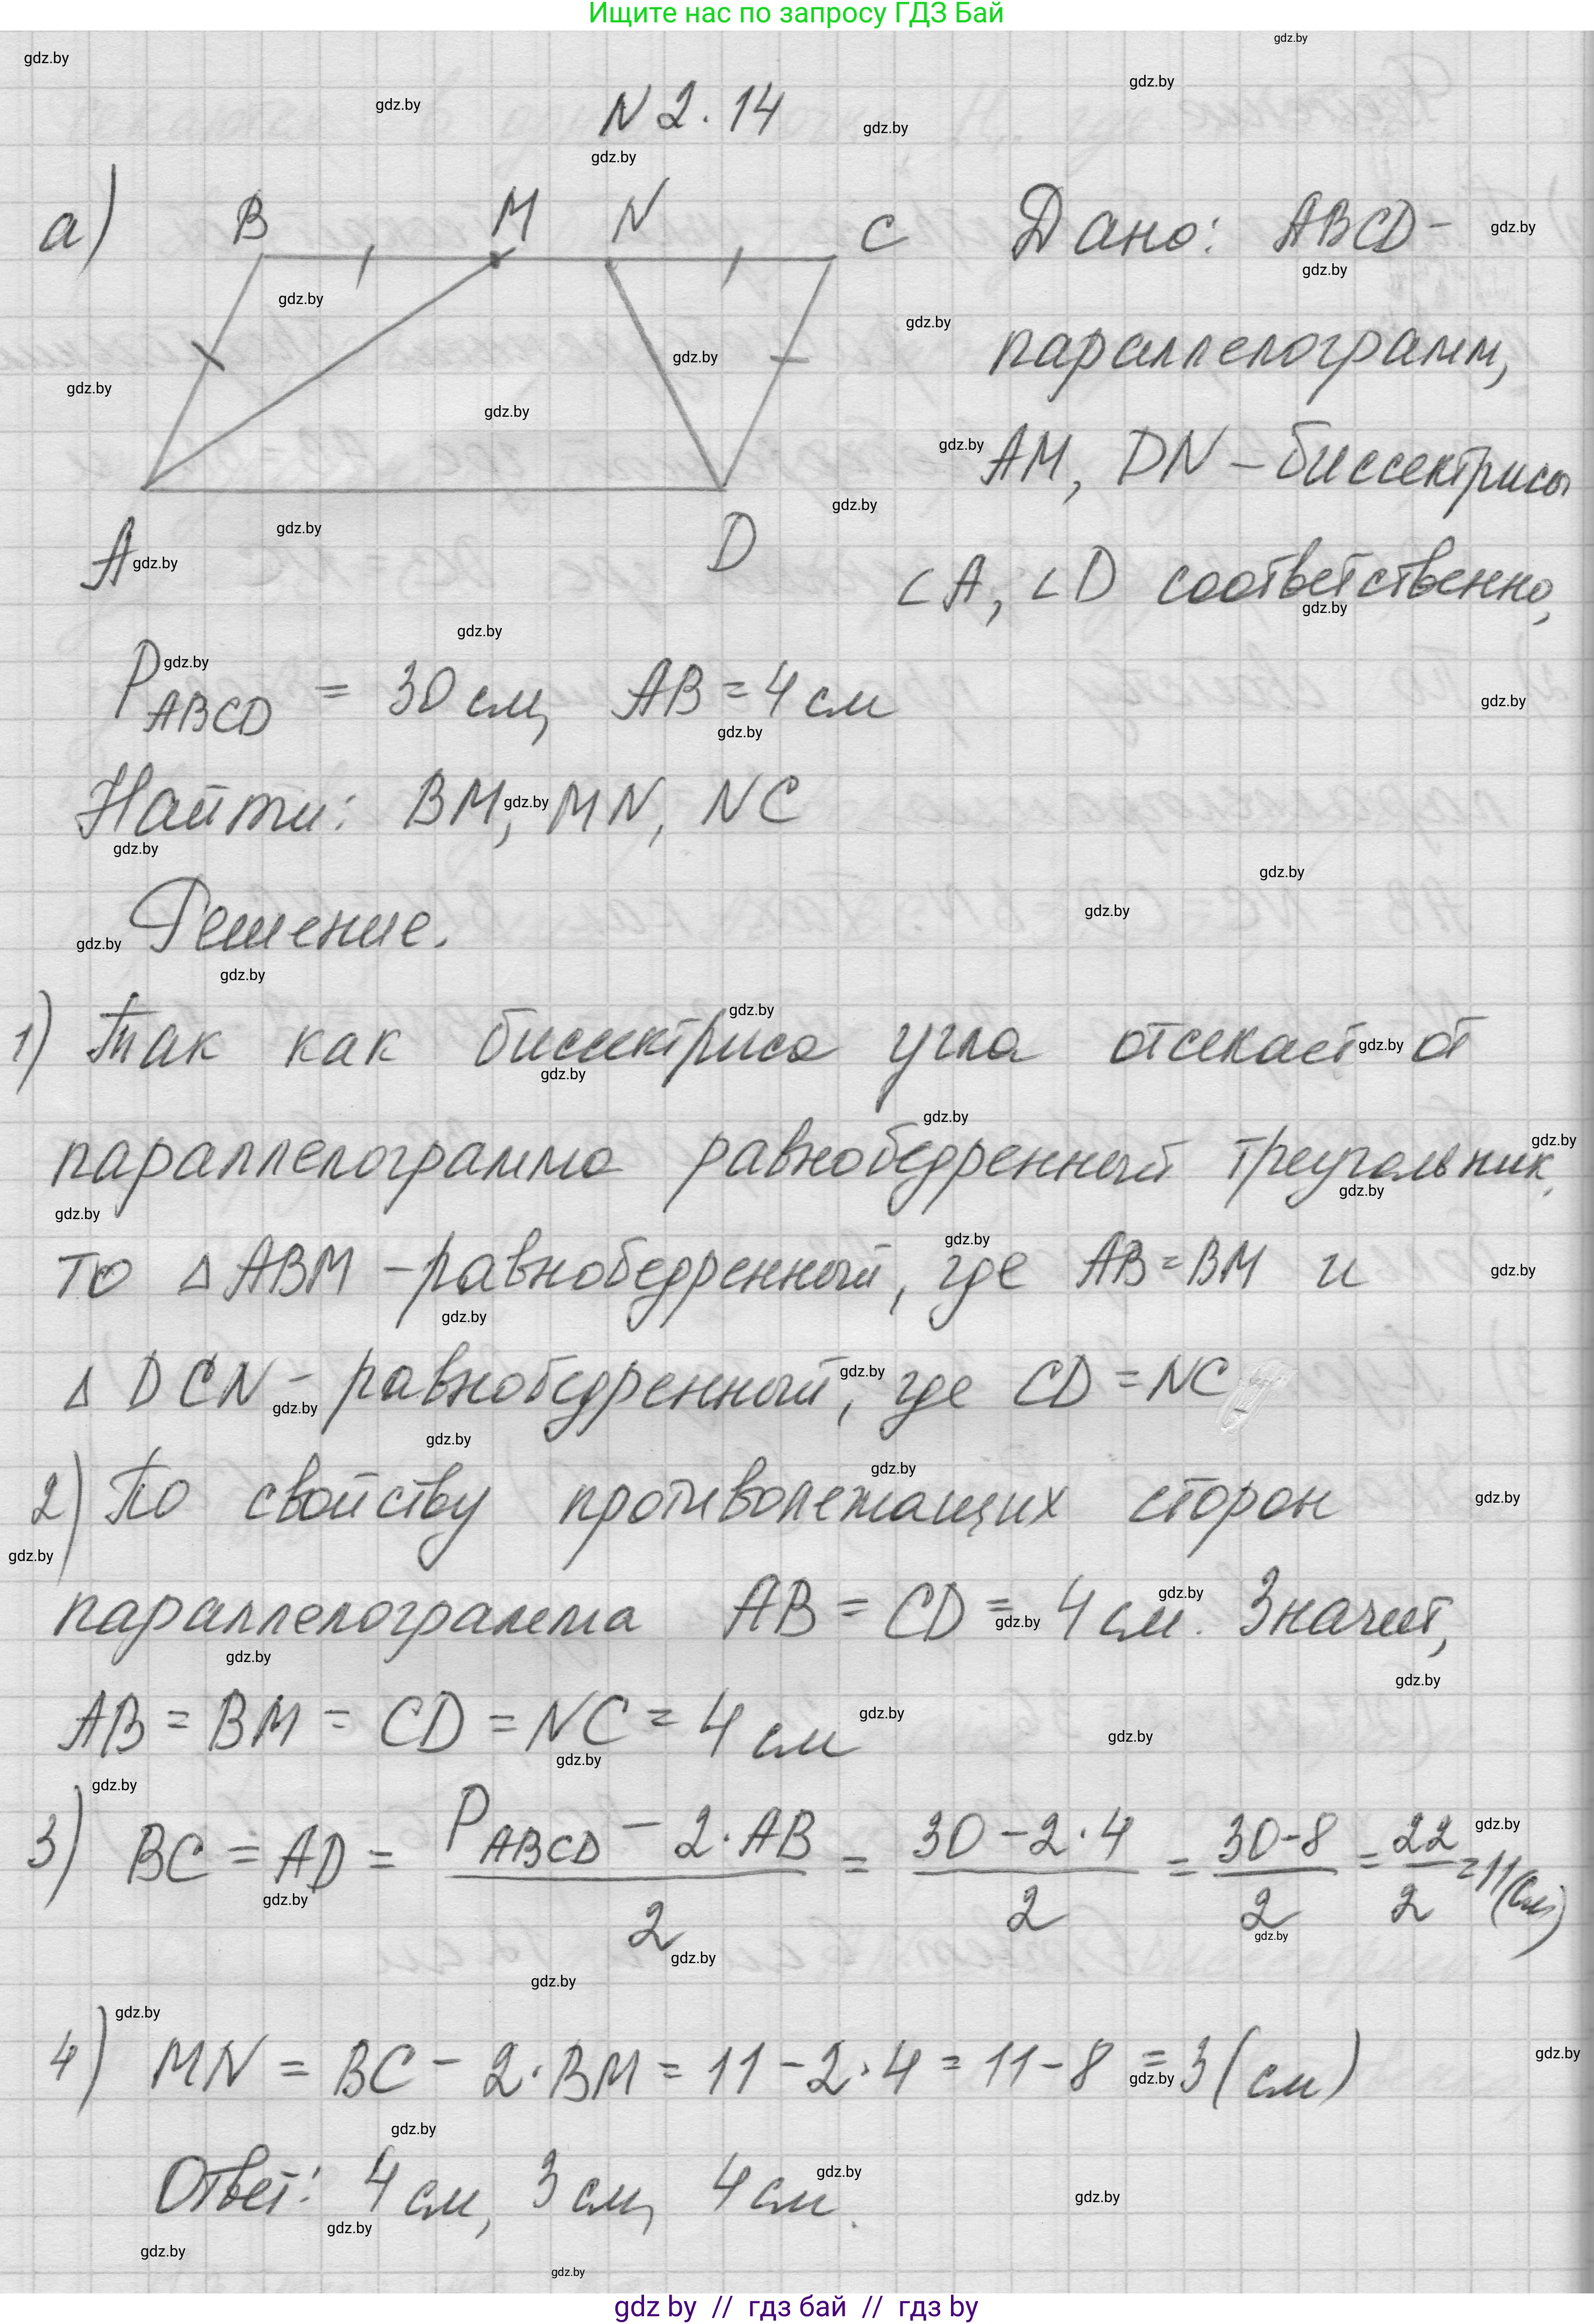 Ищите нас по запросу ГДЗ Бай
N 2.14
а) B M N C A D
Дано: ABCD -
параллелограмм,
AM, DN - биссектрисы
∠A, ∠D соответственно,
P ABCD = 30 см, AB = 4 см
Найти: BM, MN, NC
Решение.
1) Так как биссектриса угла отсекает от
параллелограмма равнобедренный треугольник,
то Δ ABM - равнобедренный, где AB = BM и
Δ DCN - равнобедренный, где CD = NC
2) По свойству противолежащих сторон
параллелограмма AB = CD = 4 см. Значит,
AB = BM = CD = NC = 4 см
3) BC = AD = (P ABCD - 2·AB)/2 = (30 - 2·4)/2 = (30-8)/2 = 22/2 = 11 (см)
4) MN = BC - 2·BM = 11 - 2·4 = 11 - 8 = 3 (см)
Ответ: 4 см, 3 см, 4 см.
gdz by // гдз бай // гдз by